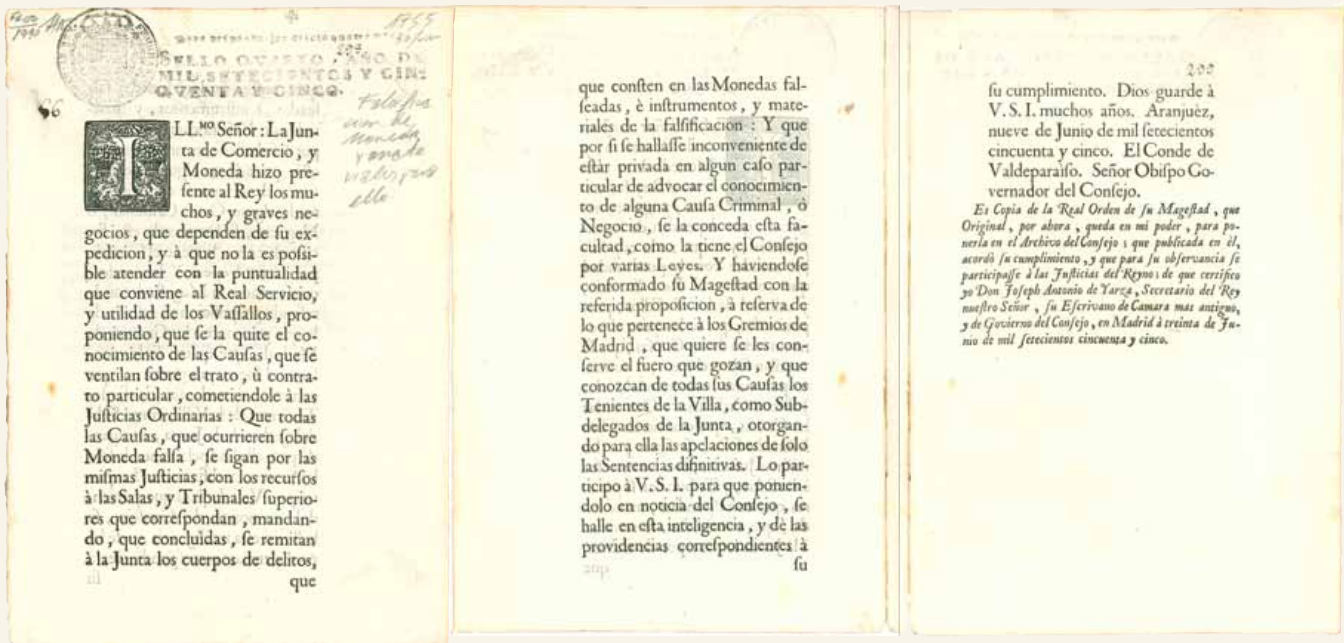 1755
SELLO QVARTO, AÑO DE
MIL SETECIENTOS Y CIN-
QVENTA Y CINCO.
Falsifica
cion de
Moneda
ello
ILL.ᴹᴼ Señor: La Jun-
ta de Comercio, y
Moneda hizo pre-
ſente al Rey los mu-
chos, y graves ne-
gocios, que dependen de ſu ex-
pedicion, y à que no la es poſsi-
ble atender con la puntualidad
que conviene al Real Servicio,
y utilidad de los Vaſſallos, pro-
poniendo, que ſe la quite el co-
nocimiento de las Cauſas, que ſe
ventilan ſobre el trato, ù contra-
to particular, cometiendole à las
Juſticias Ordinarias: Que todas
las Cauſas, que ocurrieren ſobre
Moneda falſa, ſe ſigan por las
miſmas Juſticias, con los recurſos
à las Salas, y Tribunales ſuperio-
res que correſpondan, mandan-
do, que concluìdas, ſe remitan
à la Junta los cuerpos de delitos,
que
que conſten en las Monedas fal-
ſeadas, è inſtrumentos, y mate-
riales de la falſificacion: Y que
por ſi ſe hallaſſe inconveniente de
eſtàr privada en algun caſo par-
ticular de advocar el conocimien-
to de alguna Cauſa Criminal, ò
Negocio, ſe la conceda eſta fa-
cultad, como la tiene el Conſejo
por varias Leyes. Y haviendoſe
conformado ſu Mageſtad con la
referida propoſicion, à reſerva de
lo que pertenece à los Gremios de
Madrid, que quiere ſe les con-
ſerve el fuero que gozan, y que
conozcan de todas ſus Cauſas los
Tenientes de la Villa, como Sub-
delegados de la Junta, otorgan-
do para ella las apelaciones de ſolo
las Sentencias difinitivas. Lo par-
ticipo à V. S. I. para que ponien-
dolo en noticia del Conſejo, ſe
halle en eſta inteligencia, y dè las
providencias correſpondientes à
ſu
ſu cumplimiento. Dios guarde à
V. S. I. muchos años. Aranjuèz,
nueve de Junio de mil ſetecientos
cincuenta y cinco. El Conde de
Valdeparaìſo. Señor Obiſpo Go-
vernador del Conſejo.
Es Copia de la Real Orden de ſu Mageſtad, que
Original, por ahora, queda en mi poder, para po-
nerla en el Archivo del Conſejo; que publicada en èl,
acordò ſu cumplimiento, y que para ſu obſervancia ſe
participaſſe à las Juſticias del Reyno; de que certifico
yo Don Joſeph Antonio de Yarza, Secretario del Rey
nueſtro Señor, ſu Eſcrivano de Camara mas antiguo,
y de Govierno del Conſejo, en Madrid à treinta de Ju-
nio de mil ſetecientos cincuenta y cinco.